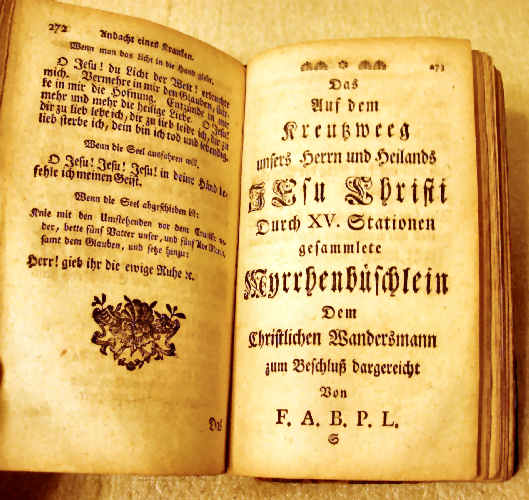 272
Andacht eines Kranken.
Wenn man das Licht in die Hand giebt.
O Jesu! du Licht der Welt! erleuchte
mich. Vermehre in mir den Glauben, stär-
ke in mir die Hofnung. Entzünde in mir
mehr und mehr die heilige Liebe. O Jesu!
dir zu lieb lebe ich, dir zu lieb leide ich, dir zu
lieb sterbe ich, dein bin ich tod und lebendig.
Wenn die Seel ausfahren will.
O Jesu! Jesu! Jesu! in deine Händ be-
fehle ich meinen Geist.
Wenn die Seel abgeschieden ist:
Knie mit den Umstehenden vor dem Crucifix nie-
der, bette fünf Vatter unser, und fünf Ave Maria,
samt dem Glauben, und setze hinzu:
Herr! gieb ihr die ewige Ruhe ꝛc.
Das
273
Das
Auf dem
Kreutzweeg
unsers Herrn und Heilands
JEsu Christi
Durch XV. Stationen
gesammlete
Myrrhenbüschlein
Dem
Christlichen Wandersmann
zum Beschluß dargereicht
Von
F. A. B. P. L.
S